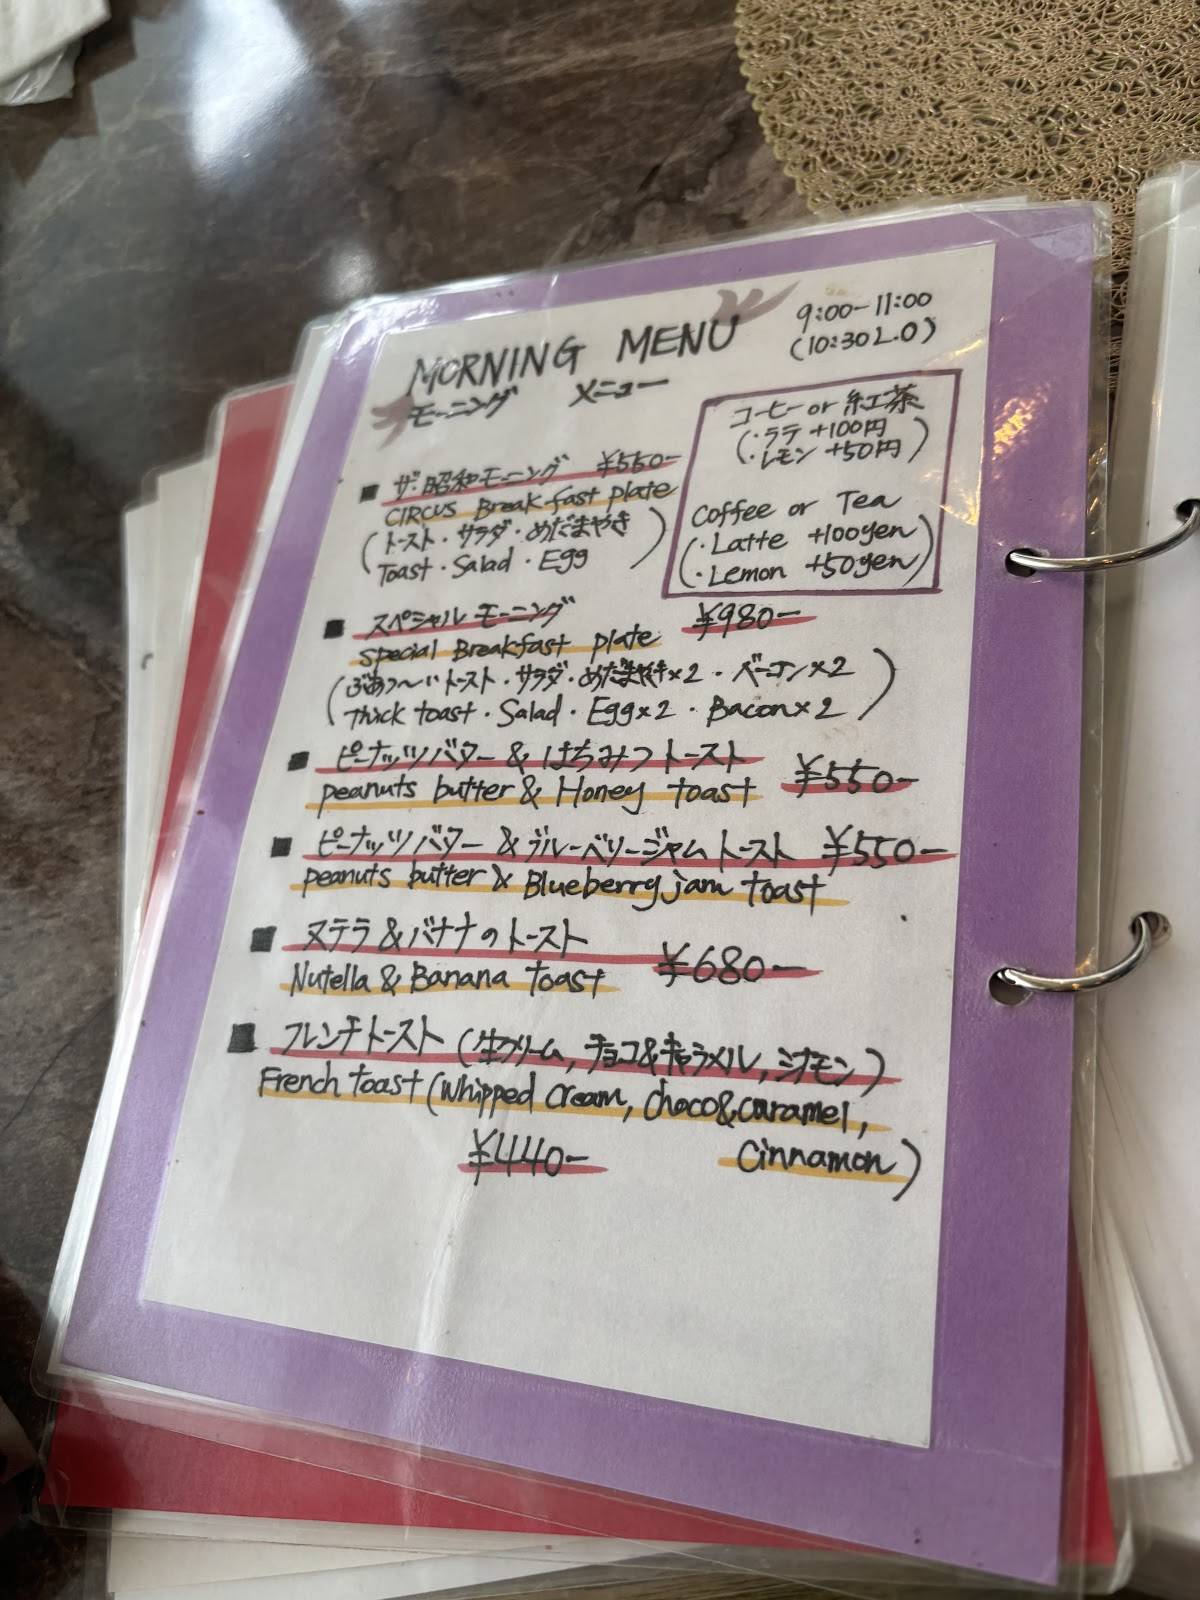 MORNING MENU
モーニング メニュー
9:00-11:00
(10:30 L.O)
コーヒー or 紅茶
(・ラテ +100円
・レモン +50円)
Coffee or Tea
(・Latte +100yen
・Lemon +50yen)
■ ザ・昭和モーニング ¥550-
CIRCUS Break fast plate
(トースト・サラダ・めだまやき
Toast・Salad・Egg)
■ スペシャルモーニング ¥980-
Special Breakfast plate
(ぶあつ〜いトースト・サラダ・めだまやき×2・ベーコン×2
Thick toast・Salad・Egg×2・Bacon×2)
■ ピーナッツバター&はちみつトースト ¥550-
peanuts butter & Honey toast
■ ピーナッツバター&ブルーベリージャムトースト ¥550-
peanuts butter & Blueberry jam toast
■ ヌテラ&バナナのトースト ¥680-
Nutella & Banana toast
■ フレンチトースト (生クリーム, チョコ&キャラメル, シナモン)
French toast (whipped cream, choco&caramel,
¥440- Cinnamon)